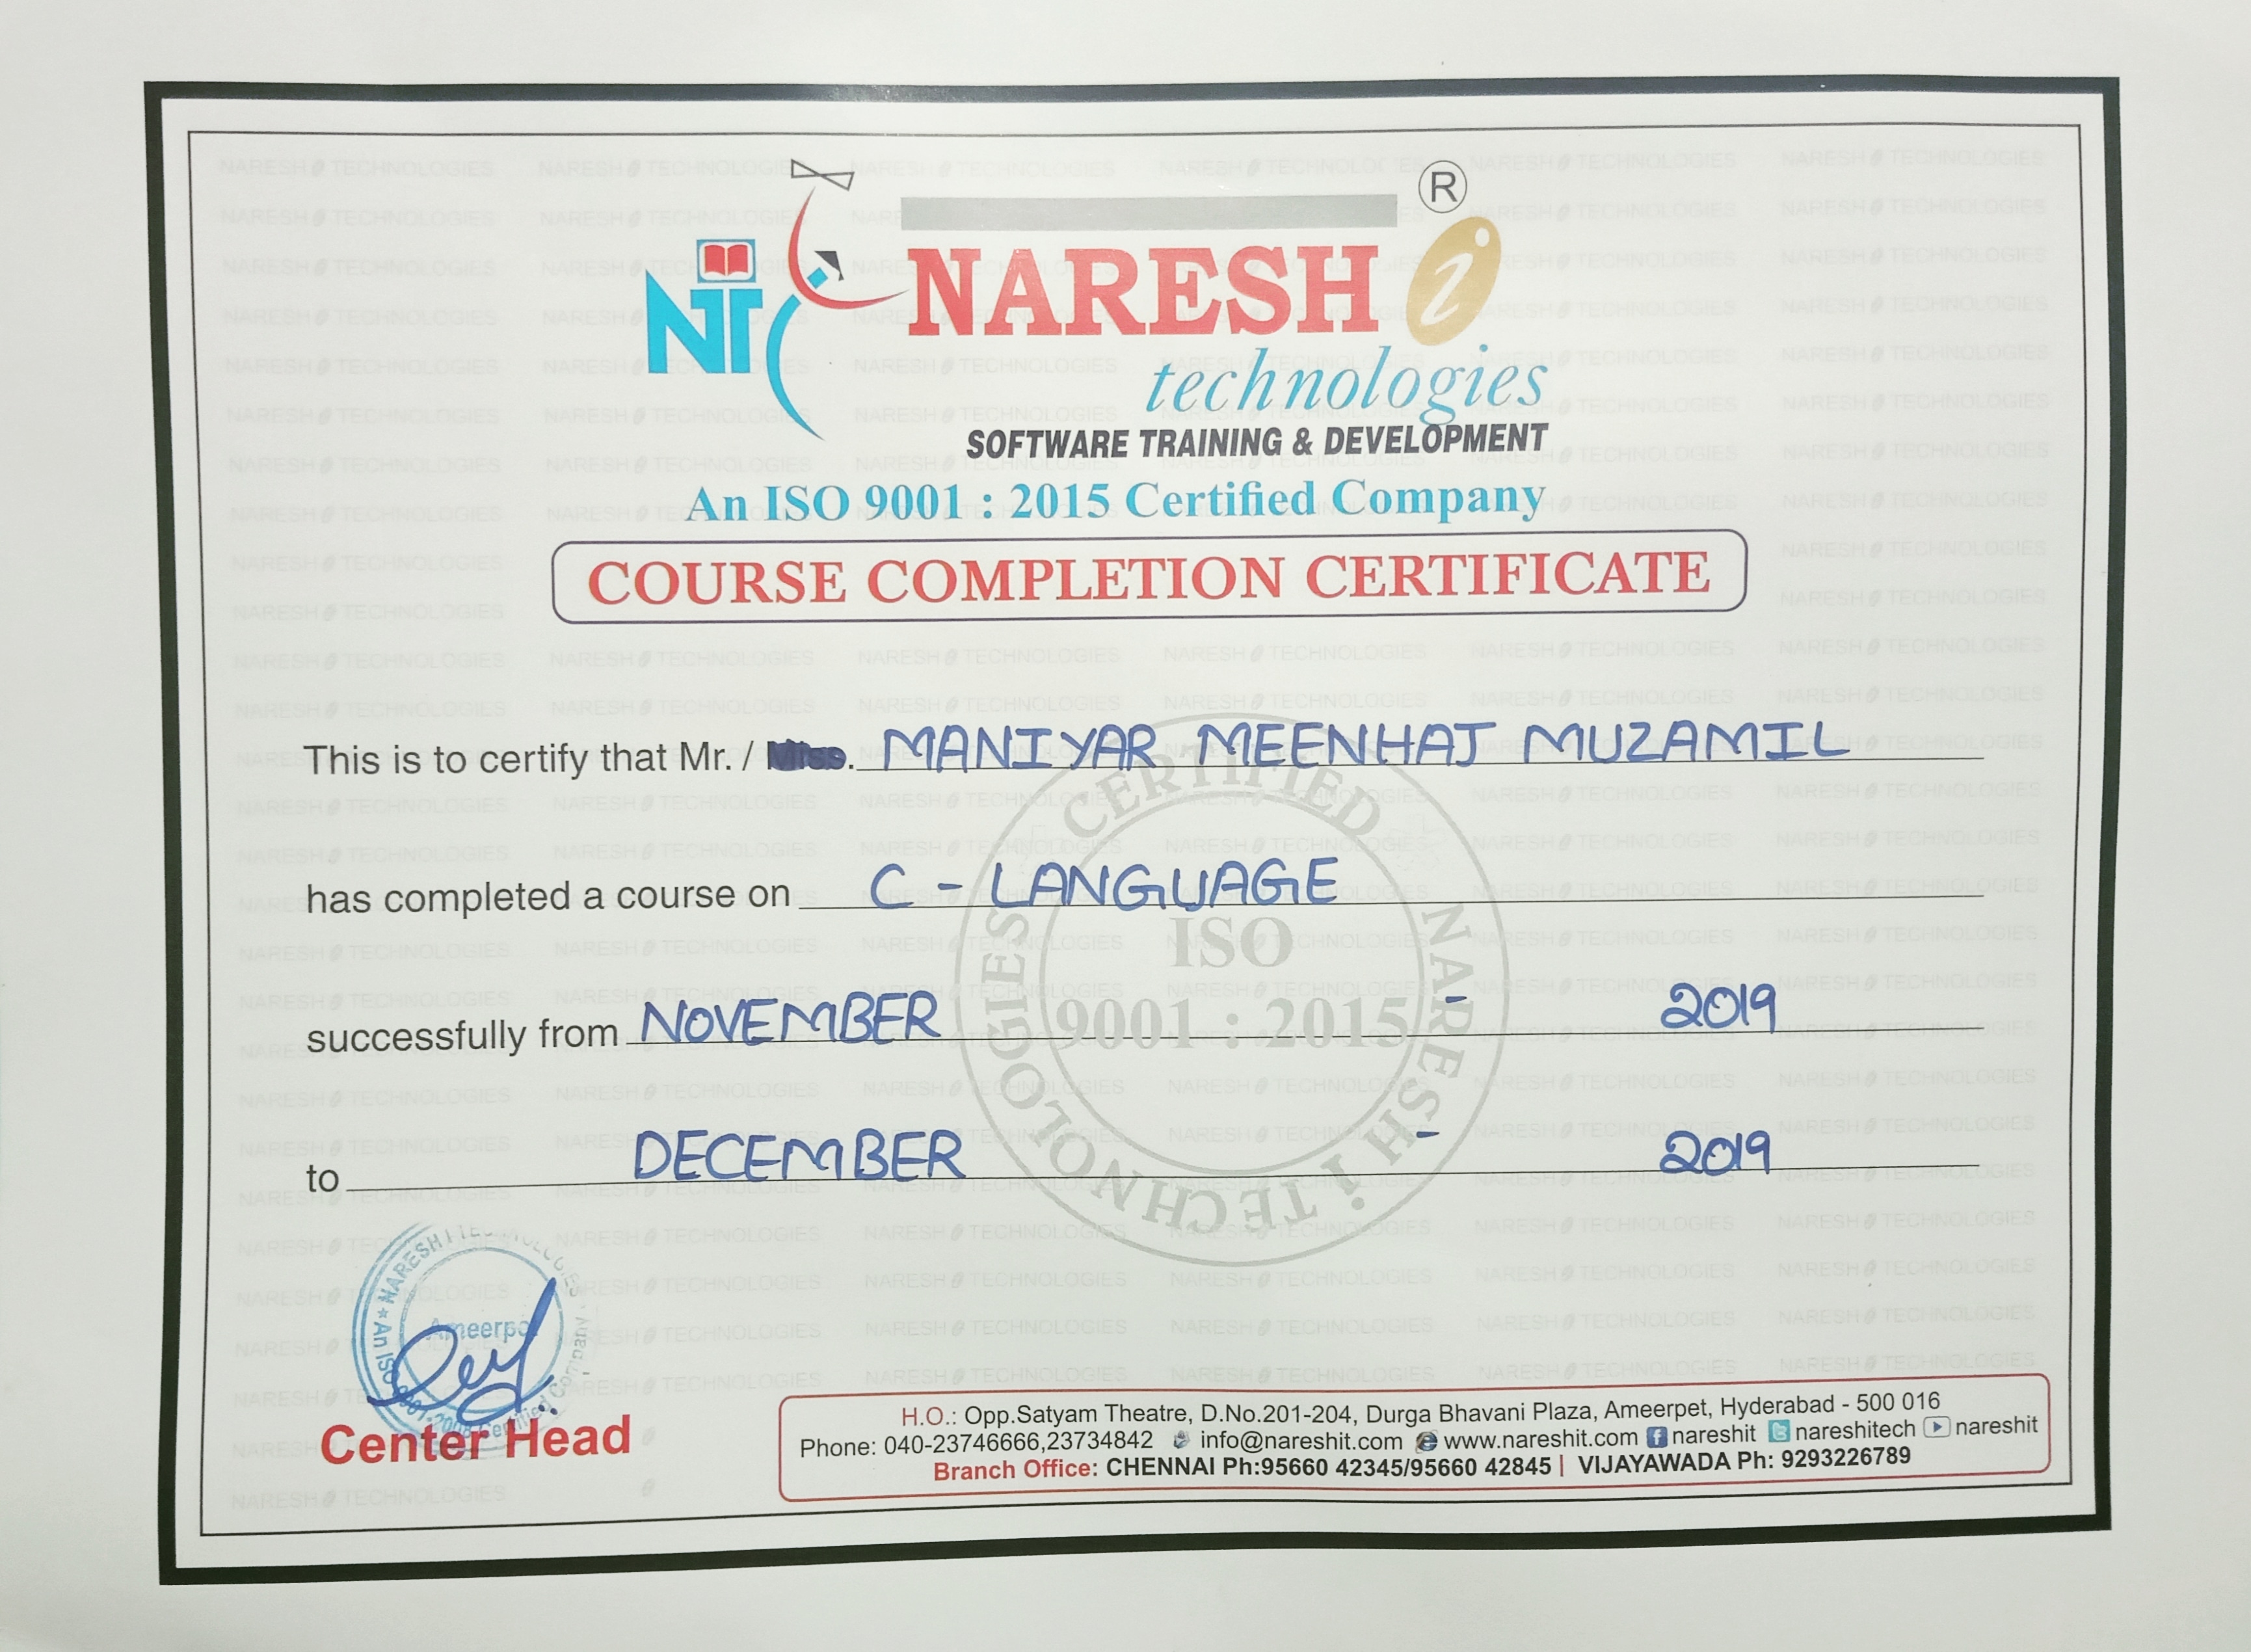 ®
NT
NARESH i
technologies
SOFTWARE TRAINING & DEVELOPMENT
An ISO 9001 : 2015 Certified Company
COURSE COMPLETION CERTIFICATE
This is to certify that Mr. / Miss. MANIYAR MEENHAJ MUZAMIL
has completed a course on C - LANGUAGE
successfully from NOVEMBER - 2019
to DECEMBER - 2019
CERTIFIED NARESH i TECHNOLOGIES
ISO
9001 : 2015
NARESH i
Ameerpe
An ISO 9001:2008 Certified Company
Center Head
H.O.: Opp.Satyam Theatre, D.No.201-204, Durga Bhavani Plaza, Ameerpet, Hyderabad - 500 016
Phone: 040-23746666,23734842 info@nareshit.com www.nareshit.com nareshit nareshitech nareshit
Branch Office: CHENNAI Ph:95660 42345/95660 42845 | VIJAYAWADA Ph: 9293226789